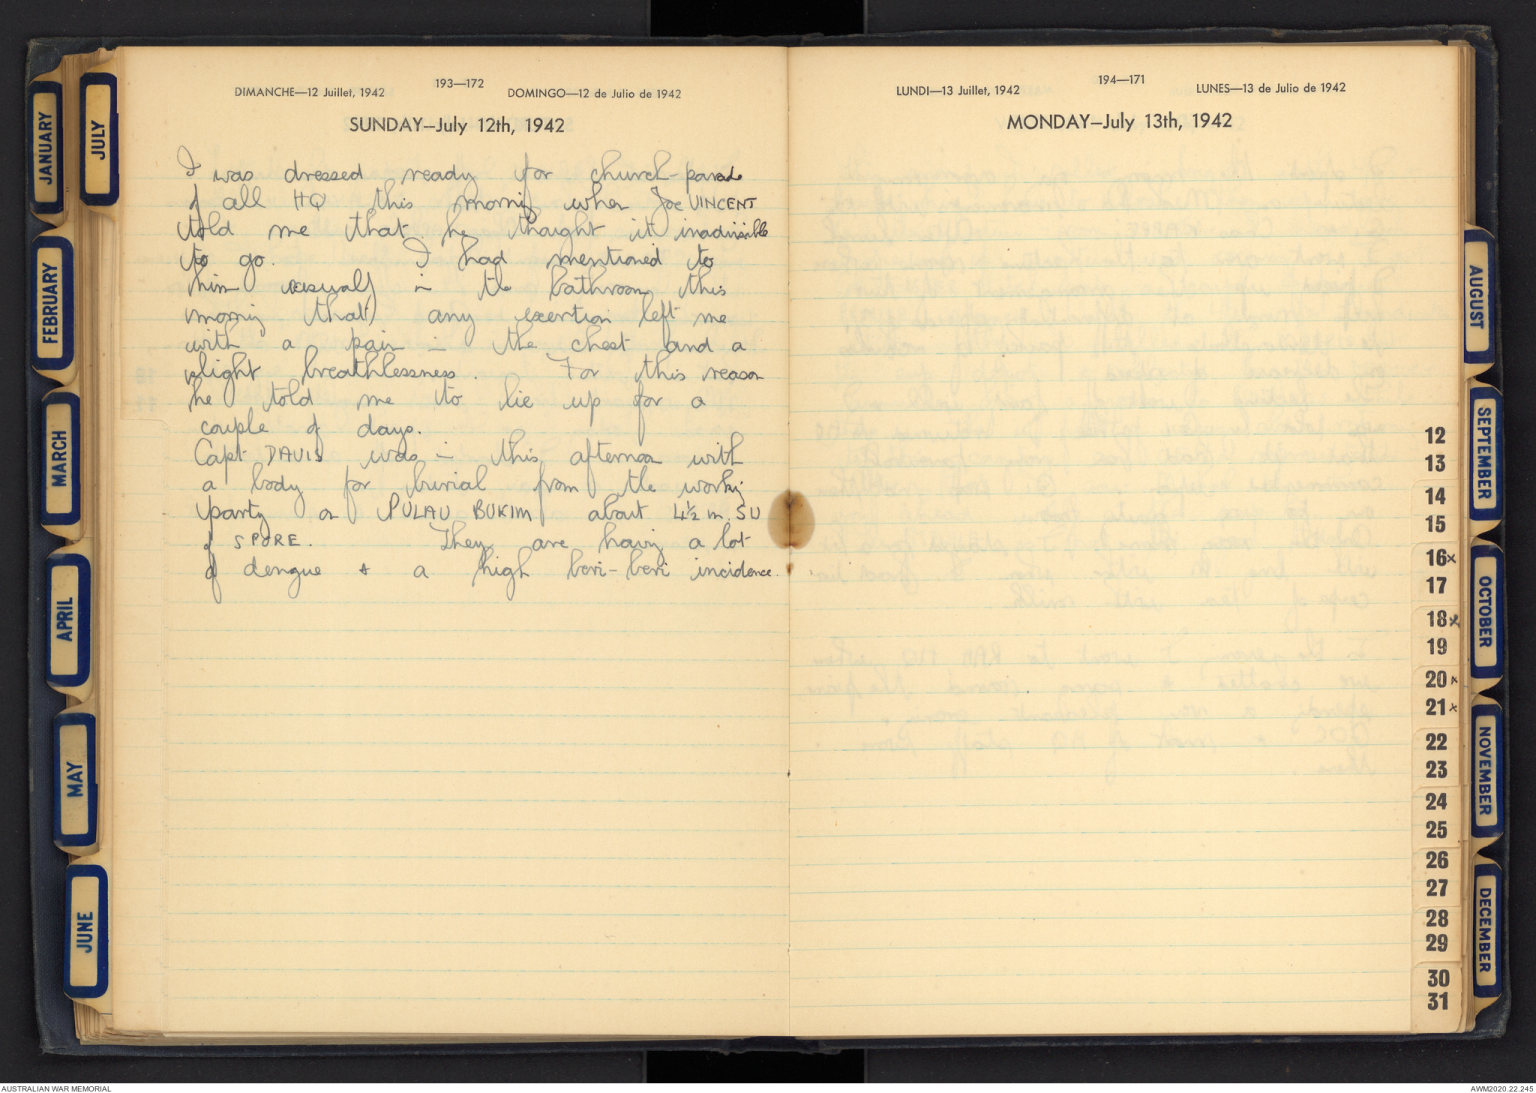 DIMANCHE—12 Juillet, 1942
193—172
DOMINGO—12 de Julio de 1942
SUNDAY—July 12th, 1942
I was dressed ready for church-parade
of all HQ this morning when Joe VINCENT
told me that he thought it inadvisible
to go. I had mentioned to
him casually in the bathroom this
morning that any exertion left me
with a pain in the chest and a
slight breathlessness. For this reason
he told me to lie up for a
couple of days.
Capt DAVIS was in this afternoon with
a body for burial from the working
party on PULAU BUKIM about 4½ m. SW
of S'PORE. They are having a lot
of dengue & a high beri-beri incidence.
LUNDI—13 Juillet, 1942
194—171
LUNES—13 de Julio de 1942
MONDAY—July 13th, 1942
JANUARY
FEBRUARY
MARCH
APRIL
MAY
JUNE
JULY
AUGUST
SEPTEMBER
OCTOBER
NOVEMBER
DECEMBER
12
13
14
15
16x
17
18x
19
20x
21x
22
23
24
25
26
27
28
29
30
31
AUSTRALIAN WAR MEMORIAL
AWM2020.22.245